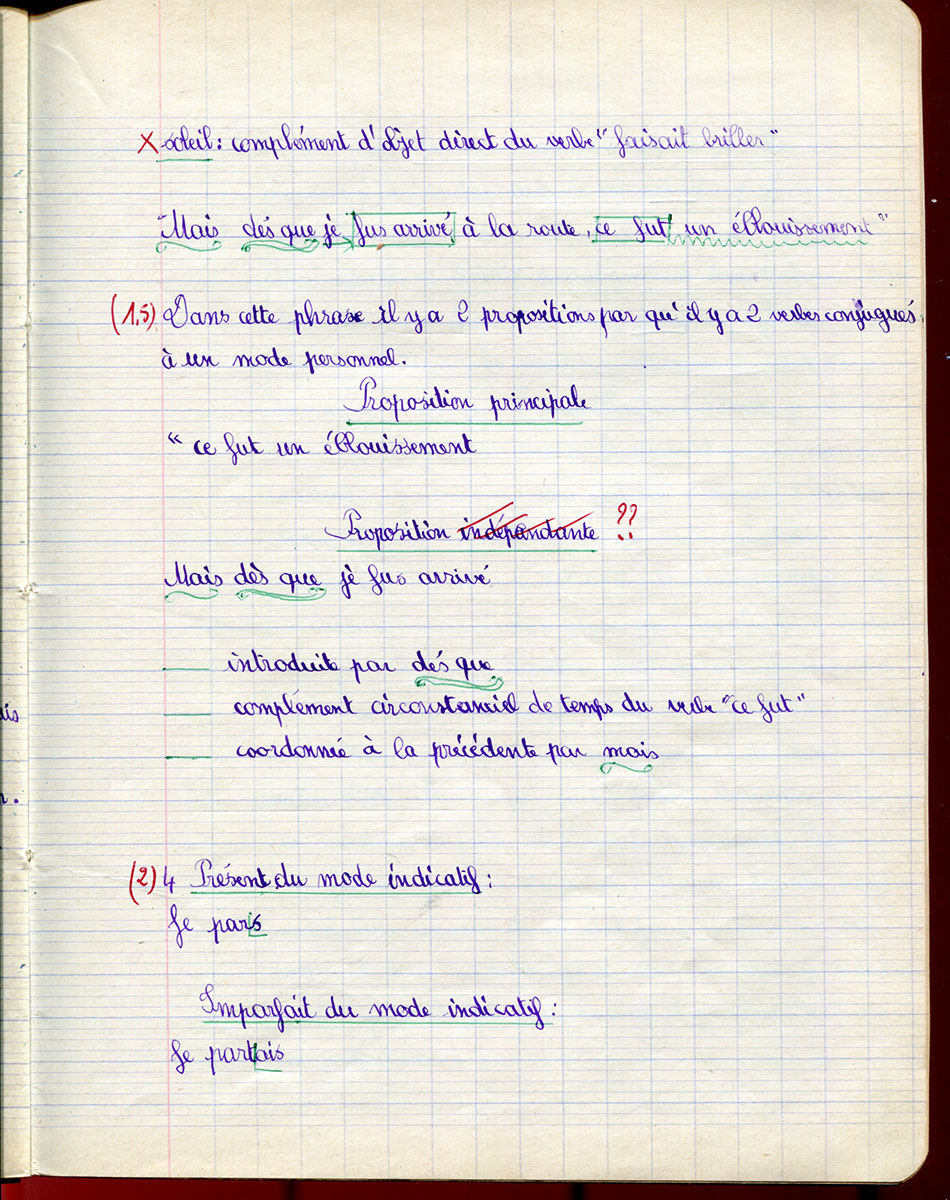 X soleil : complément d'objet direct du verbe "faisait briller"
"Mais dés que je fus arrivé à la route, ce fut un éblouissement"
(1,5) Dans cette phrase il y a 2 propositions par qu'il y a 2 verbes conjugués
à un mode personnel.
Proposition principale
" ce fut un éblouissement
Proposition indépendante ??
Mais dès que je fus arrivé
introduite par dés que
complément circonstanciel de temps du verbe "ce fut"
coordonnée à la précédente par mais
(2) 4 Présent du mode indicatif :
Je pars
Imparfait du mode indicatif :
Je partais